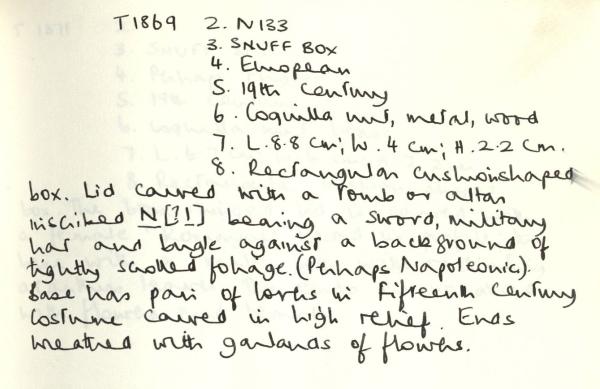 T1869 2. N133
3. SNUFF BOX
4. European
5. 19th Century
6. Coquilla nut, metal, wood
7. L. 8.8 cm; W. 4 cm; H. 2.2 cm.
8. Rectangular cushionshaped
box. Lid carved with a tomb or altar
inscribed N[?!] bearing a sword, military
hat and bugle against a background of
tightly scrolled foliage. (Perhaps Napoleonic).
Base has pair of lovers in fifteenth century
costume carved in high relief. Ends
wreathed with garlands of flowers.